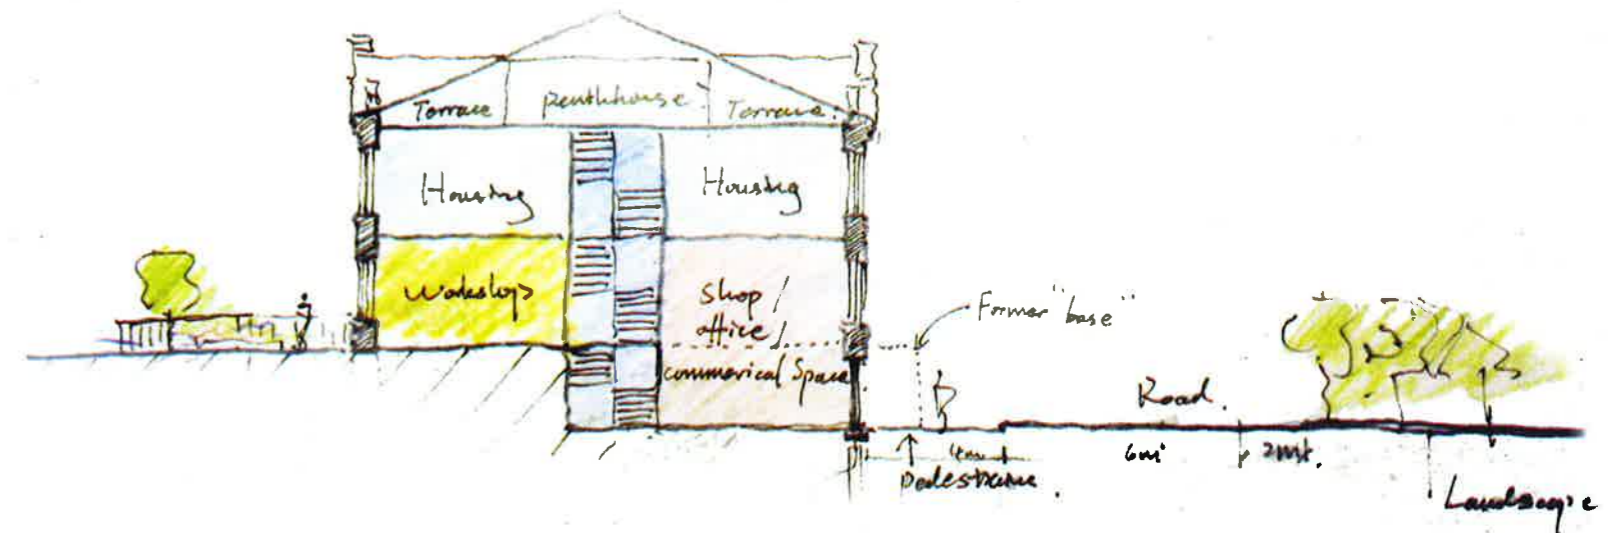 Terrace
penthhouse
Terrace.
Housing
Housing
Workshops
Shop /
office /
commerical Space
Former "base"
Road.
4m
6m
2mt.
Pedestraine.
Landscape